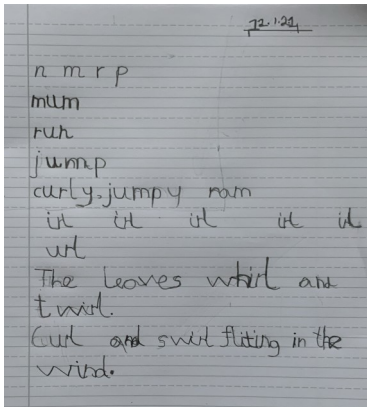 22.1.22
n m r p
mum
run
jump
curly jumpy ram
irl irl irl irl irl
url
The leaves whirl and
twirl.
Curl and swirl fliting in the
wind.